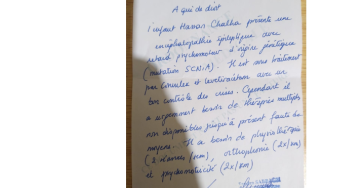 A qui de droit
l'enfant Hassan Chalha présente une
encéphalopathie épileptique avec
retard psychomoteur d'origine génétique
(mutation SCN1A). Il est sous traitement
par et levetiracetam avec un
bon contrôle des crises. Cependant il
a urgemment besoin de thérapies multiples
non disponibles jusqu'à présent faute de
moyens. Il a besoin de physiothérapie
(2 séances /sem), orthophonie (2x/sem)
et psychomotricité (2x/sem)